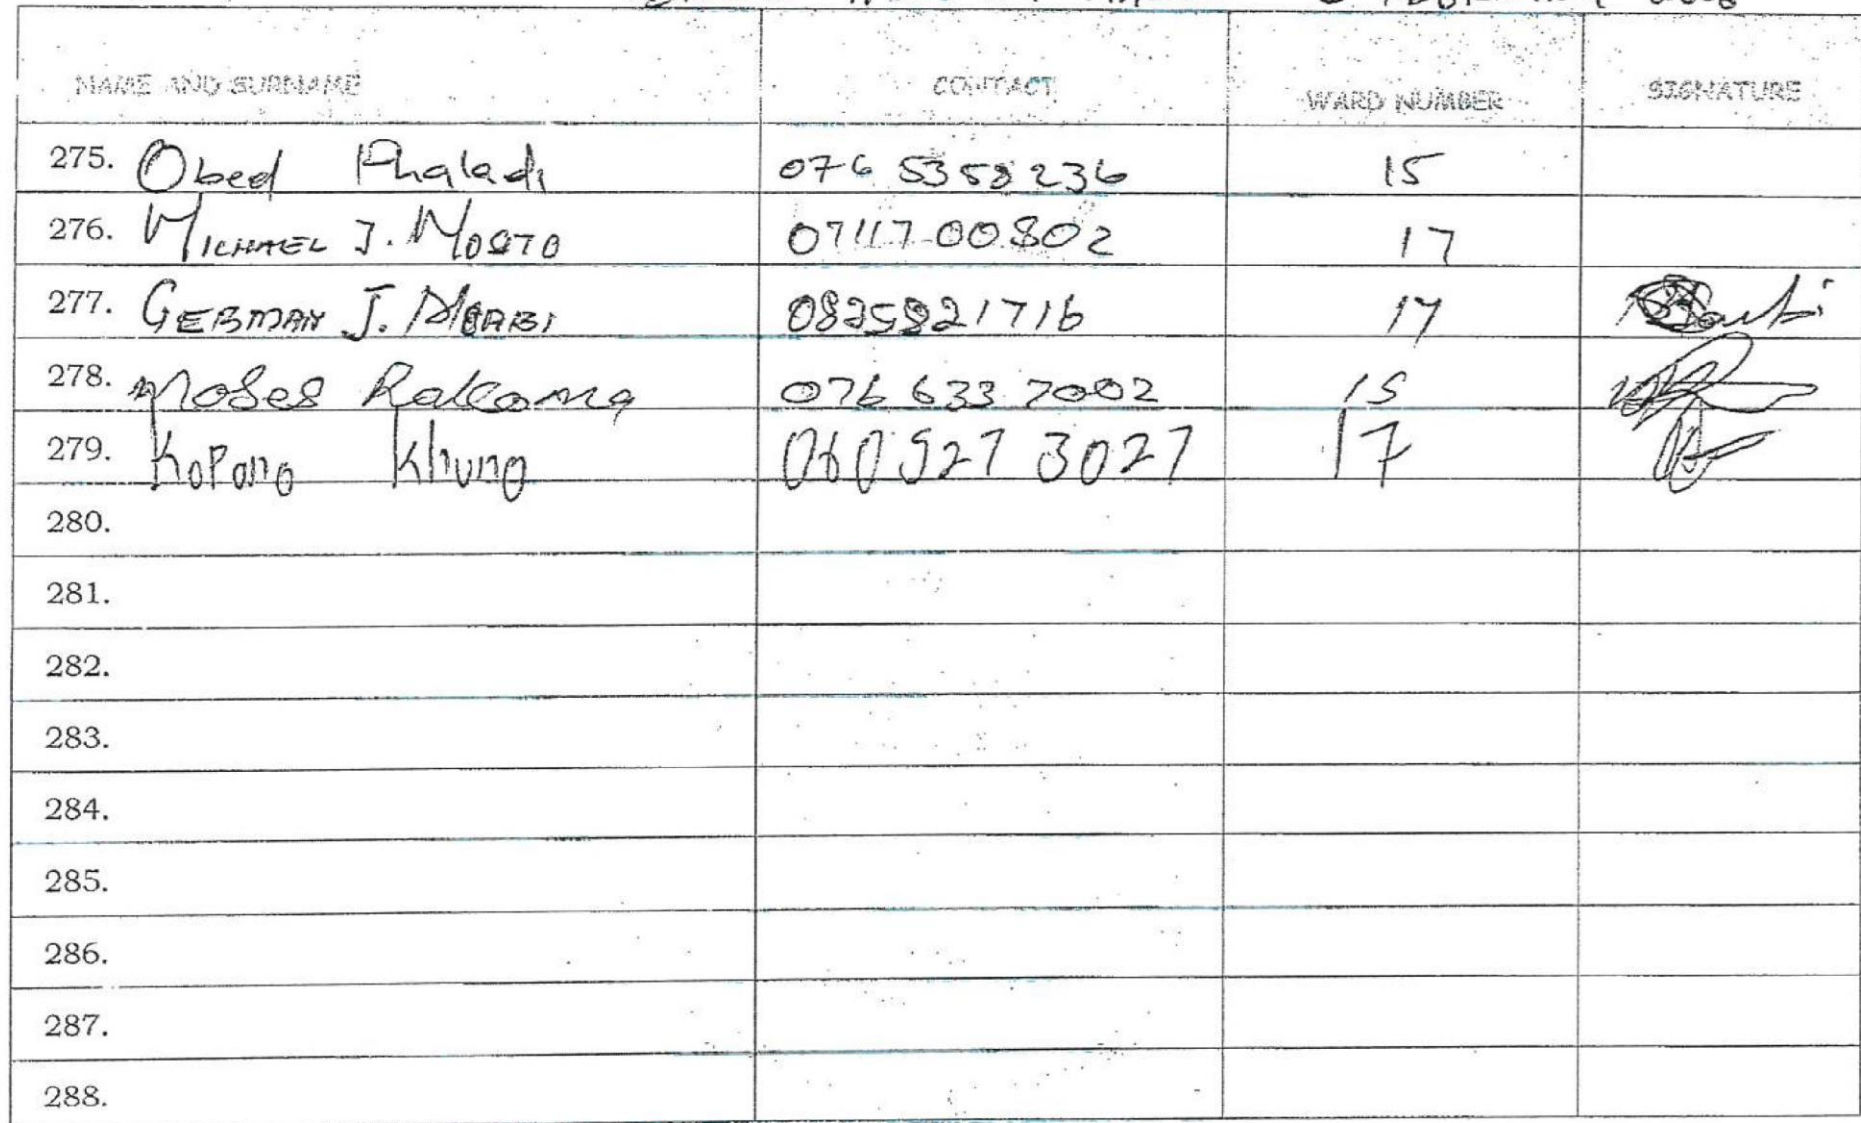 NAME AND SURNAME CONTACT WARD NUMBER SIGNATURE
275. Obed Phaladi 076 5358236 15
276. MICHAEL J. 0711700802 17
277. GERMAN J. 0825821716 17
278. Moses 076 633 7002 15
279. KoPano Khuno 060 527 3027 17
280.
281.
282.
283.
284.
285.
286.
287.
288.